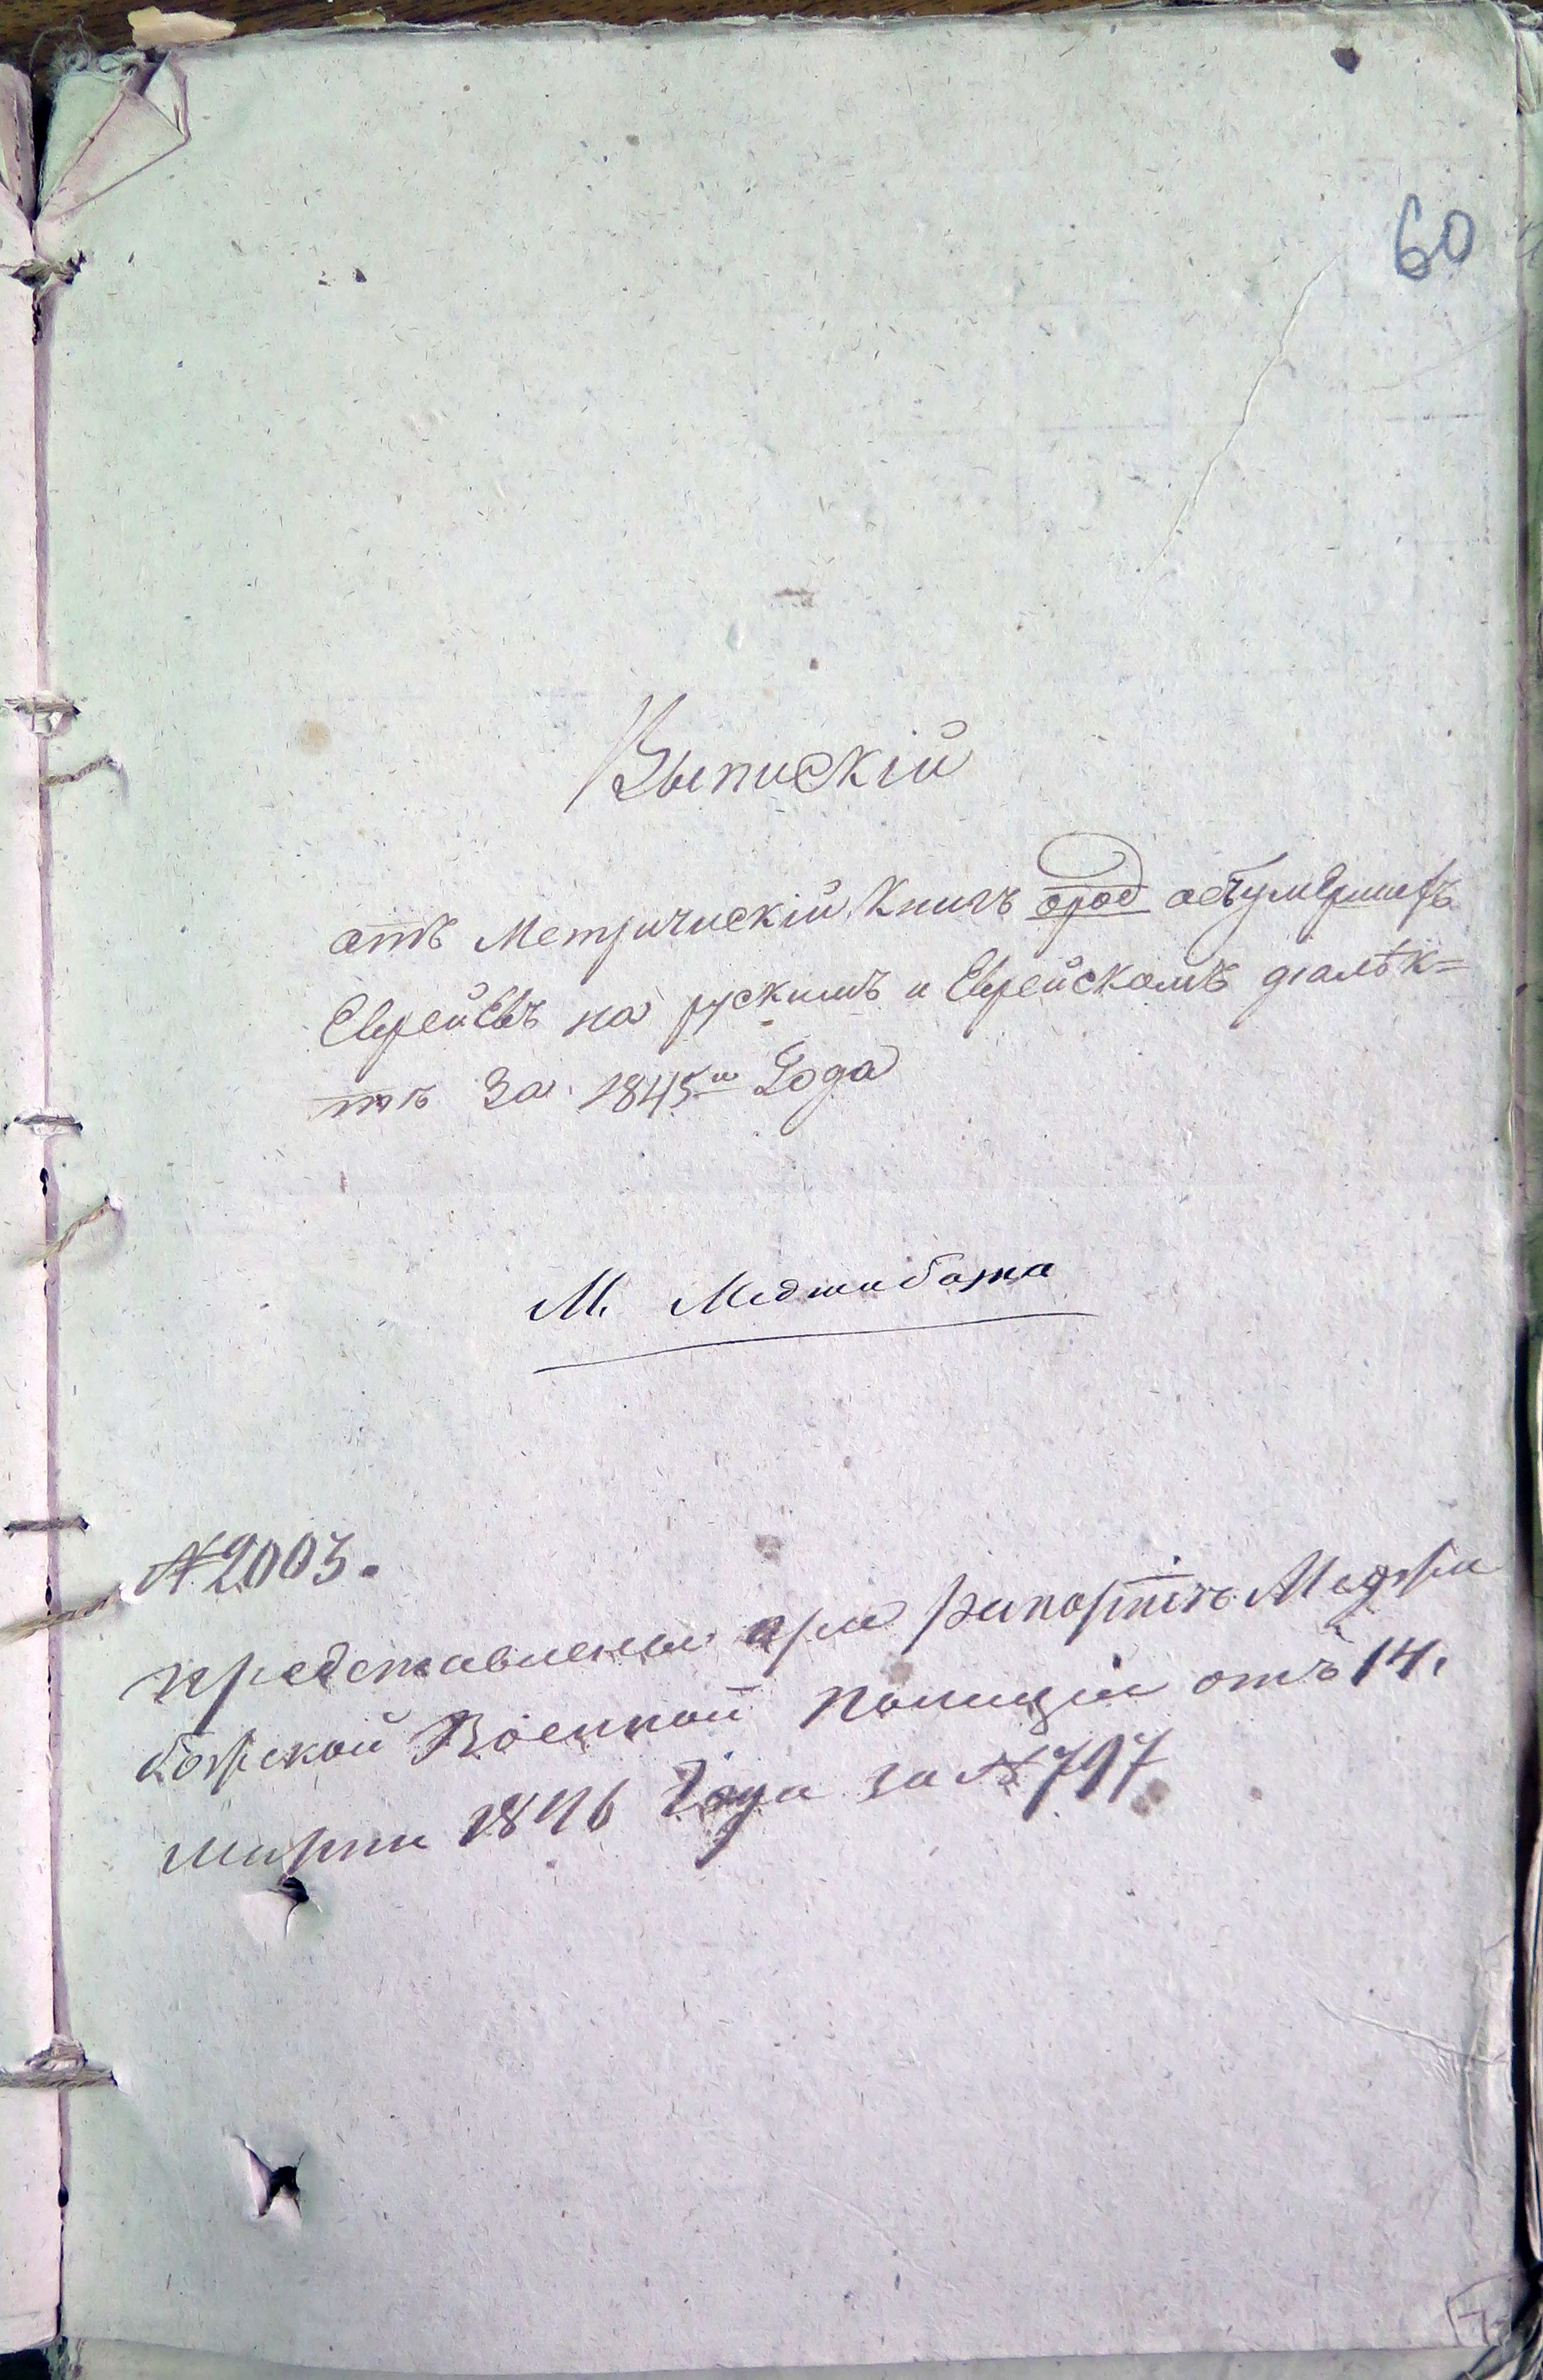 60
Выпискiй
отъ Метрическiй Книгъ объ умершихъ
Еврейевъ на рускимъ и Еврейскомъ дiалѣк=
тъ За 1845й Года
М. Меджибожа
№ 2003.
представлена при рапортѣ Меджи
божской Военной полицiи отъ 14.
марта 1846 Года за № 797